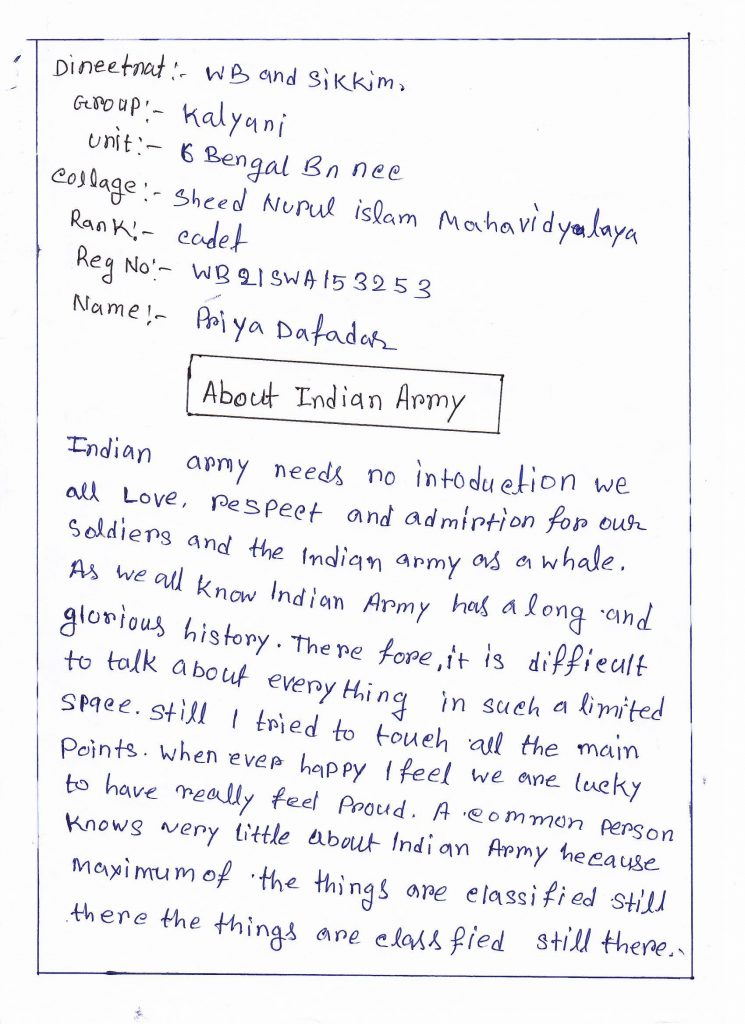 Dineetnat:- WB and Sikkim.
Group:- Kalyani
unit:- 6 Bengal Bn nce
Collage:- Sheed Nurul islam Mahavidyalaya
Rank:- cadet
Reg No:- WB21SWA153253
Name:- Priya Dafadar
About Indian Army
Indian army needs no intoduction we
all Love, respect and admirtion for our
Soldiers and the Indian army as a whale.
As we all know Indian Army has a long and
glorious history. There fore, it is difficult
to talk about every thing in such a limited
space. still I tried to touch all the main
Points. when ever happy I feel we are lucky
to have really feel Proud. A common person
knows very little about Indian Army because
Maximum of the things are classified still
there the things are classfied still there..